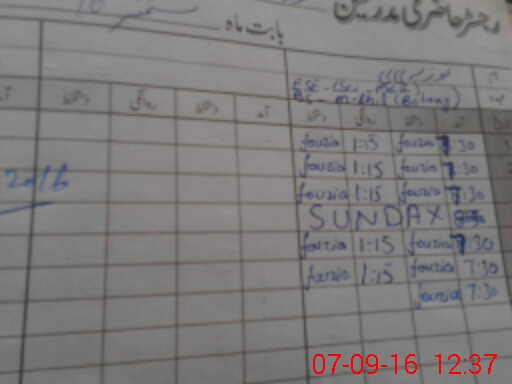 رجسٹر حاضری مدرسین
بابت ماہ ستمبر 16
آمد دستخط روانگی دستخط آمد دستخط روانگی دستخط
fouzia 1:15 fouzia 7:30
fouzia 1:15 fouzia 7:30
2016
fouzia 1:15 fouzia 7:30
SUNDAY
fouzia 1:15 fouzia 7:30
fouzia 1:15 fouzia 7:30
fouzia 7:30
07-09-16 12:37